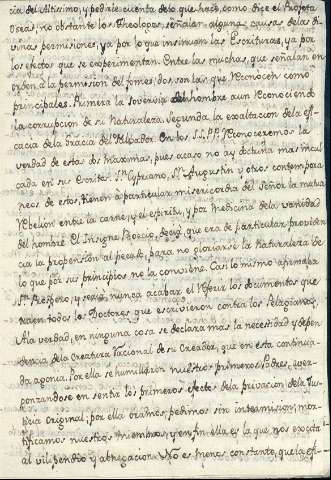 cia del Altisimo, y pedirle cuenta de lo que hace, como dice el Profeta
Oseas; no obstante los Theologos, señalan algunas causas de las di-
vinas permisiones, ya por lo que insinuan las Escrituras, ya por
los efectos que se experimentan. Entre las muchas, que señalan en
orden a la permision del fomes, dos son las que reconocen como
principales. Primera la sobervia del hombre aun reconociendo
la corrupcion de su Naturaleza. Segunda la exaltacion de la efi-
cacia de la Gracia del Salvador. En los SS. PP. reconocemos la
verdad de estas dos Maximas, pues acaso no ay doctrina mas incul-
cada en sus escritos. Sn. Cypriano, Sn. Augustin y otros contempora-
neos de estos, tienen à particular misericordia del Señor la mutua
rebelion entre la carne, y el espiritu, y por medicina de la vanidad
del hombre. El Insigne Boecio, que era de particular providen-
cia la propension al pecado, para no gloriarse la Naturaleza de
lo que por sus principios no la conviene. Casi lo mismo afirmaba
Sn. Prospero, y seria nunca acabar el referir los documentos que
traen todos los Doctores que escrivieron contra los Pelagianos.
A la verdad, en ninguna cosa se declara mas la necesidad y depen-
dencia de la Creatura racional de su Creador, que en esta continua-
da agonia. Por ella se humillaron nuestros primeros Padres, aver-
gonzandose en sentir los primeros efectos de la privacion de la Jus-
ticia original; por ella oramos, pedimos sin intermision, mor-
tificamos nuestros miembros, y en fin ella es la que nos excita
al vilipendio y abnegacion. No es menos constante, que la efi-